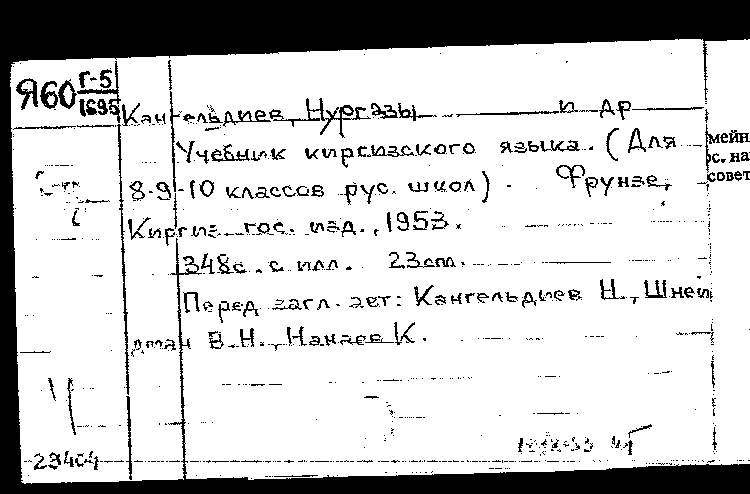 Я60 Г-5
1695
Кангельдиев, Нургазы и др
Учебник киргизского языка. (Для
8-9-10 классов рус. школ). Фрунзе,
Киргиз. гос. изд., 1953.
348с. с илл. 23см.
Перед загл. авт: Кангельдиев Н., Шней
дман В.Н., Нанаев К.
29404
мейн
с. на
совет